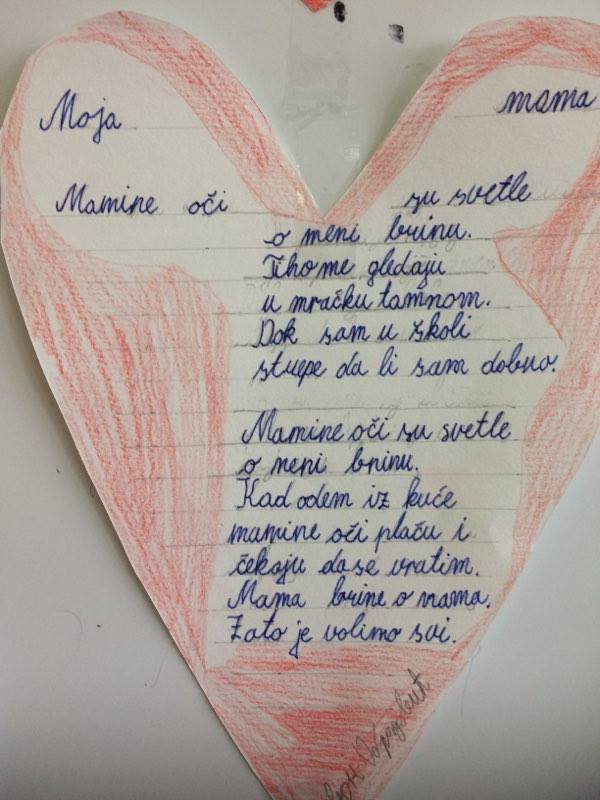 Moja mama
Mamine oči su svetle
o meni brinu.
Tiho me gledaju
u mračku tamnom.
Dok sam u školi
strepe da li sam dobro.
Mamine oči su svetle
o meni brinu.
Kad odem iz kuće
mamine oči plaču i
čekaju da se vratim.
Mama brine o nama.
Zato je volimo svi.